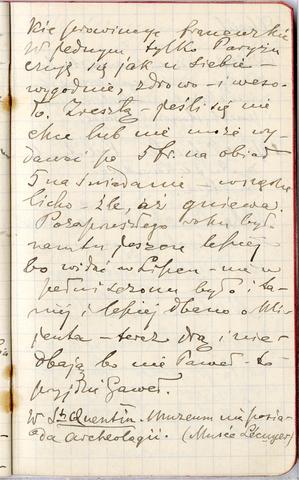 kie prowincye francuzkie
W jednym tylko Paryżu
czuję się jak u siebie –
wygodnie, zdrowo i weso-
ło. Zresztą – jeśli się nie
chce lub nie może wy-
dawać po 5 fr. na obiad
5 na śniadanie –
licho – źle, aż gniewa.
roku było
nam tu jeszcze lepiej
bo widać w Lipcu – nie w
pełni sezonu było i ta-
niej i lepiej dbano o kli-
jenta – teraz drą i nie
dbają bo nie Paweł – to
przyjdzi Gaweł.
W St Quentin. Muzeum nie posia-
da archeologii. (Musée Lécuyer)